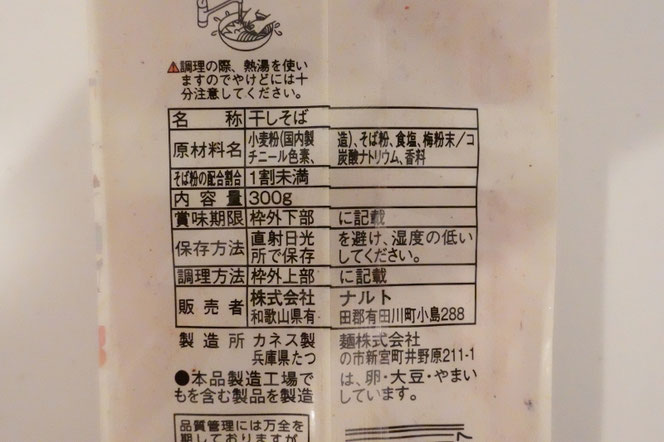 ⚠調理の際、熱湯を使い
ますのでやけどには十
分注意してください。
名称 干しそば
原材料名 小麦粉(国内製造)、そば粉、食塩、梅粉末/コ
チニール色素、炭酸ナトリウム、香料
そば粉の配合割合 1割未満
内容量 300g
賞味期限 枠外下部に記載
保存方法 直射日光を避け、湿度の低い
所で保存してください。
調理方法 枠外上部に記載
販売者 株式会社ナルト
和歌山県有田郡有田川町小島288
製造所 カネス製麺株式会社
兵庫県たつの市新宮町井野原211-1
●本品製造工場では、卵・大豆・やまい
もを含む製品を製造しています。
品質管理には万全を
期しておりますが